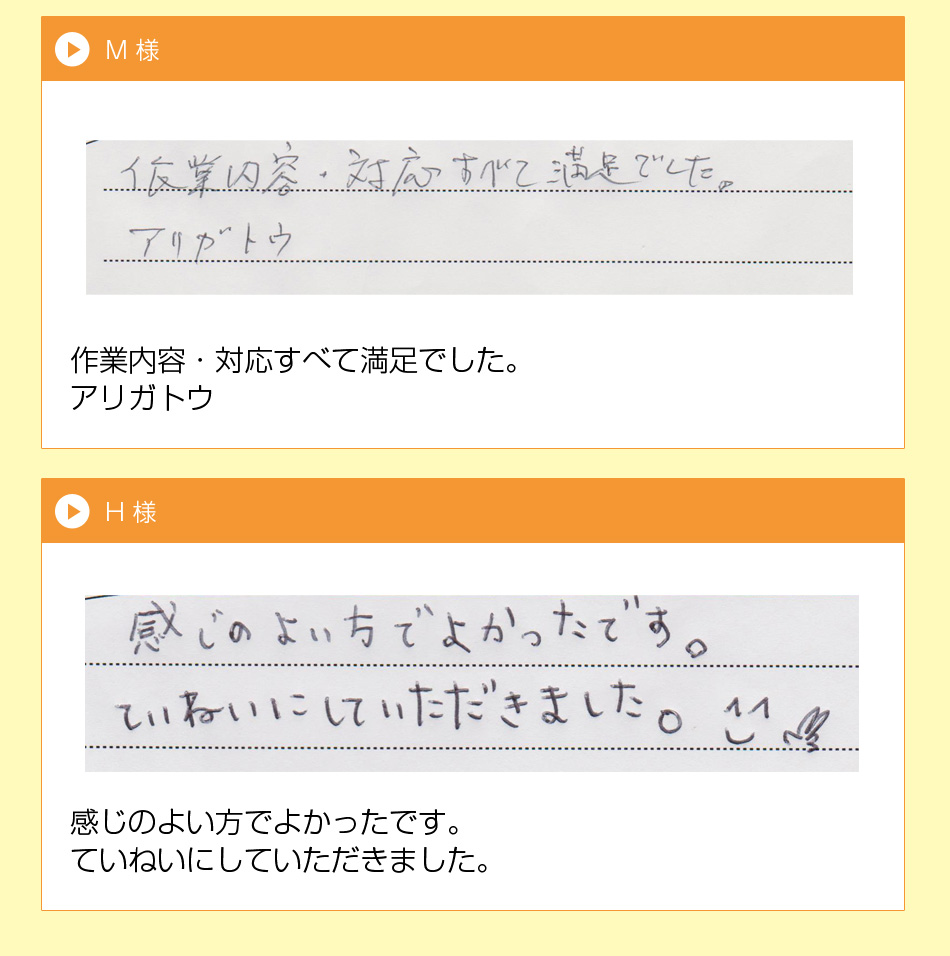 M 様
作業内容・対応すべて満足でした。
アリガトウ
作業内容・対応すべて満足でした。
アリガトウ
H 様
感じのよい方でよかったです。
ていねいにしていただきました。
感じのよい方でよかったです。
ていねいにしていただきました。